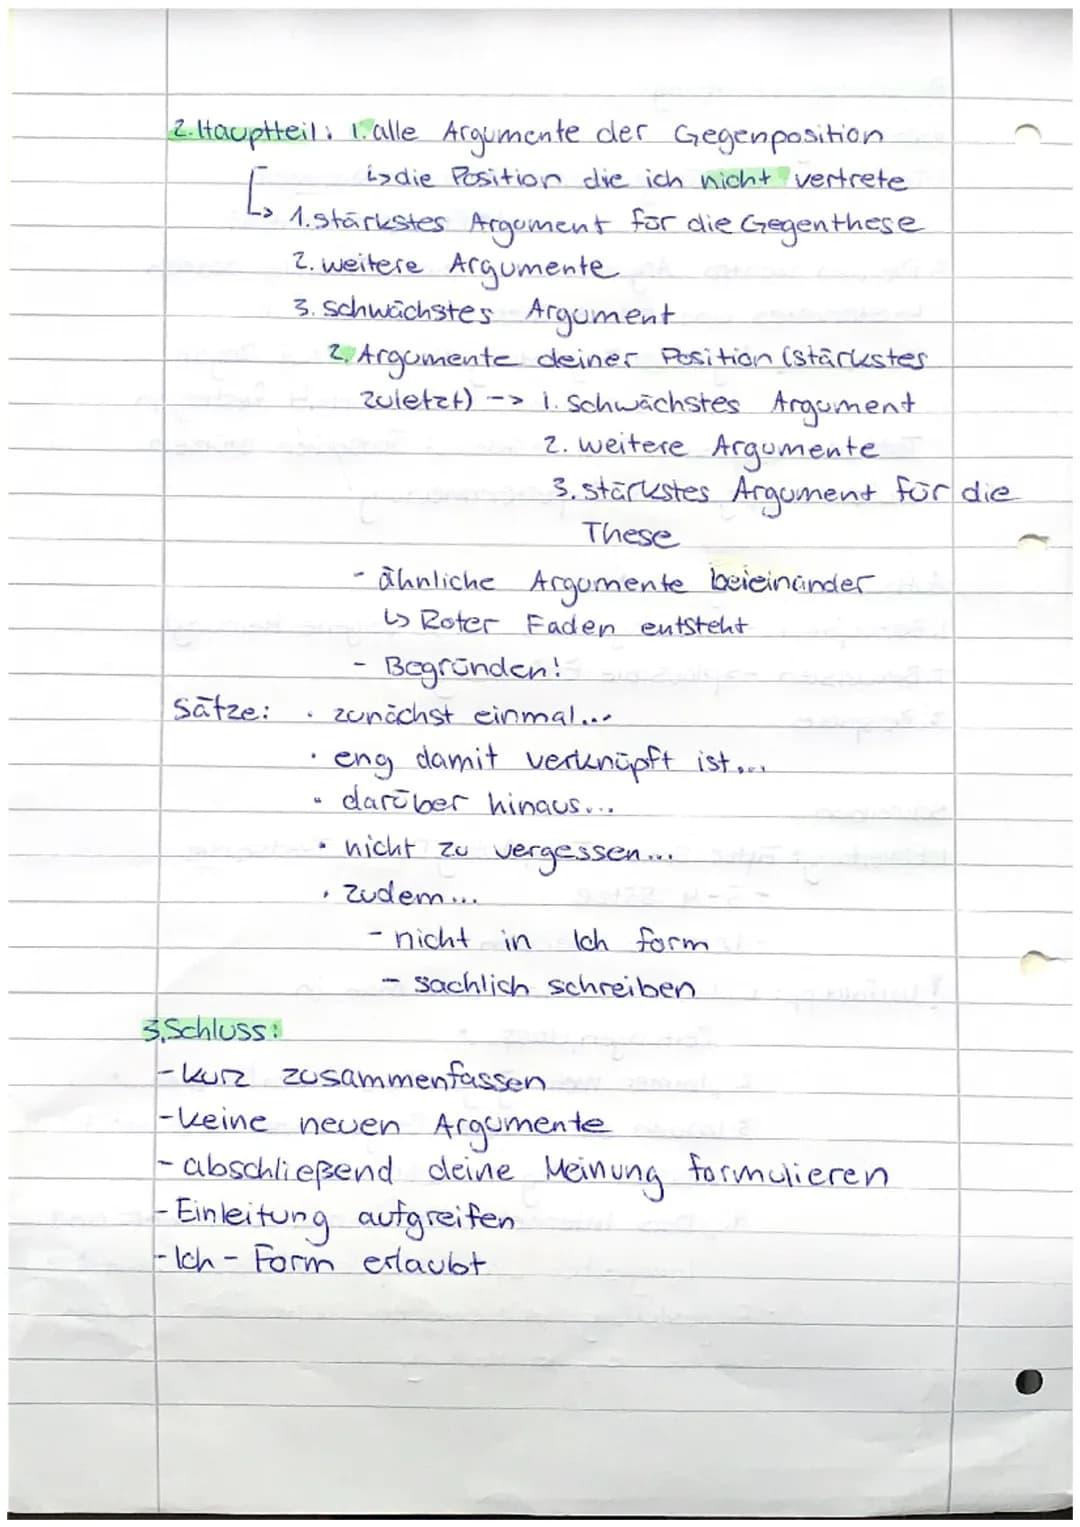 2. Hauptteil: 1. alle Argumente der Gegenposition
↳ die Position die ich nicht vertrete
↳ 1. stärkstes Argument für die Gegenthese
2. weitere Argumente
3. schwächstes Argument
2. Argumente deiner Position (stärkstes
zuletzt) --> 1. schwächstes Argument
2. weitere Argumente
3. stärkstes Argument für die
These
- ähnliche Argumente beieinander
↳ Roter Faden entsteht
- Begründen!
Sätze: · zunächst einmal...
· eng damit verknüpft ist...
· darüber hinaus...
· nicht zu vergessen...
· zudem...
- nicht in Ich form
- sachlich schreiben
3. Schluss:
- kurz zusammenfassen
- keine neuen Argumente
- abschließend deine Meinung formulieren
- Einleitung aufgreifen
- Ich - Form erlaubt